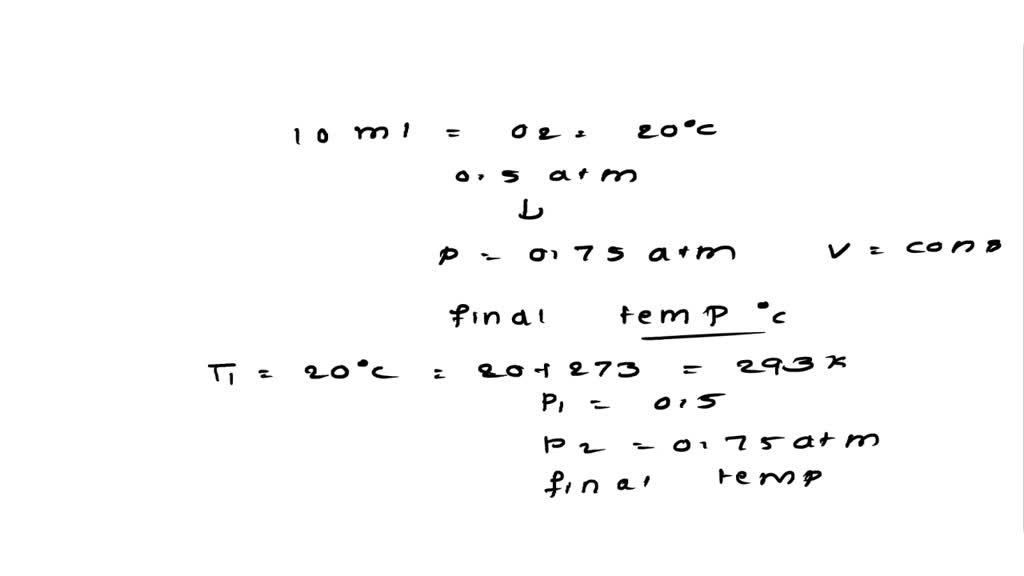 10 ml = O2. 20°C
0.5 atm
↓
P = 0.75 atm V = cons
final temp °C
T1 = 20°C = 20+273 = 293K
P1 = 0.5
P2 = 0.75 atm
final temp